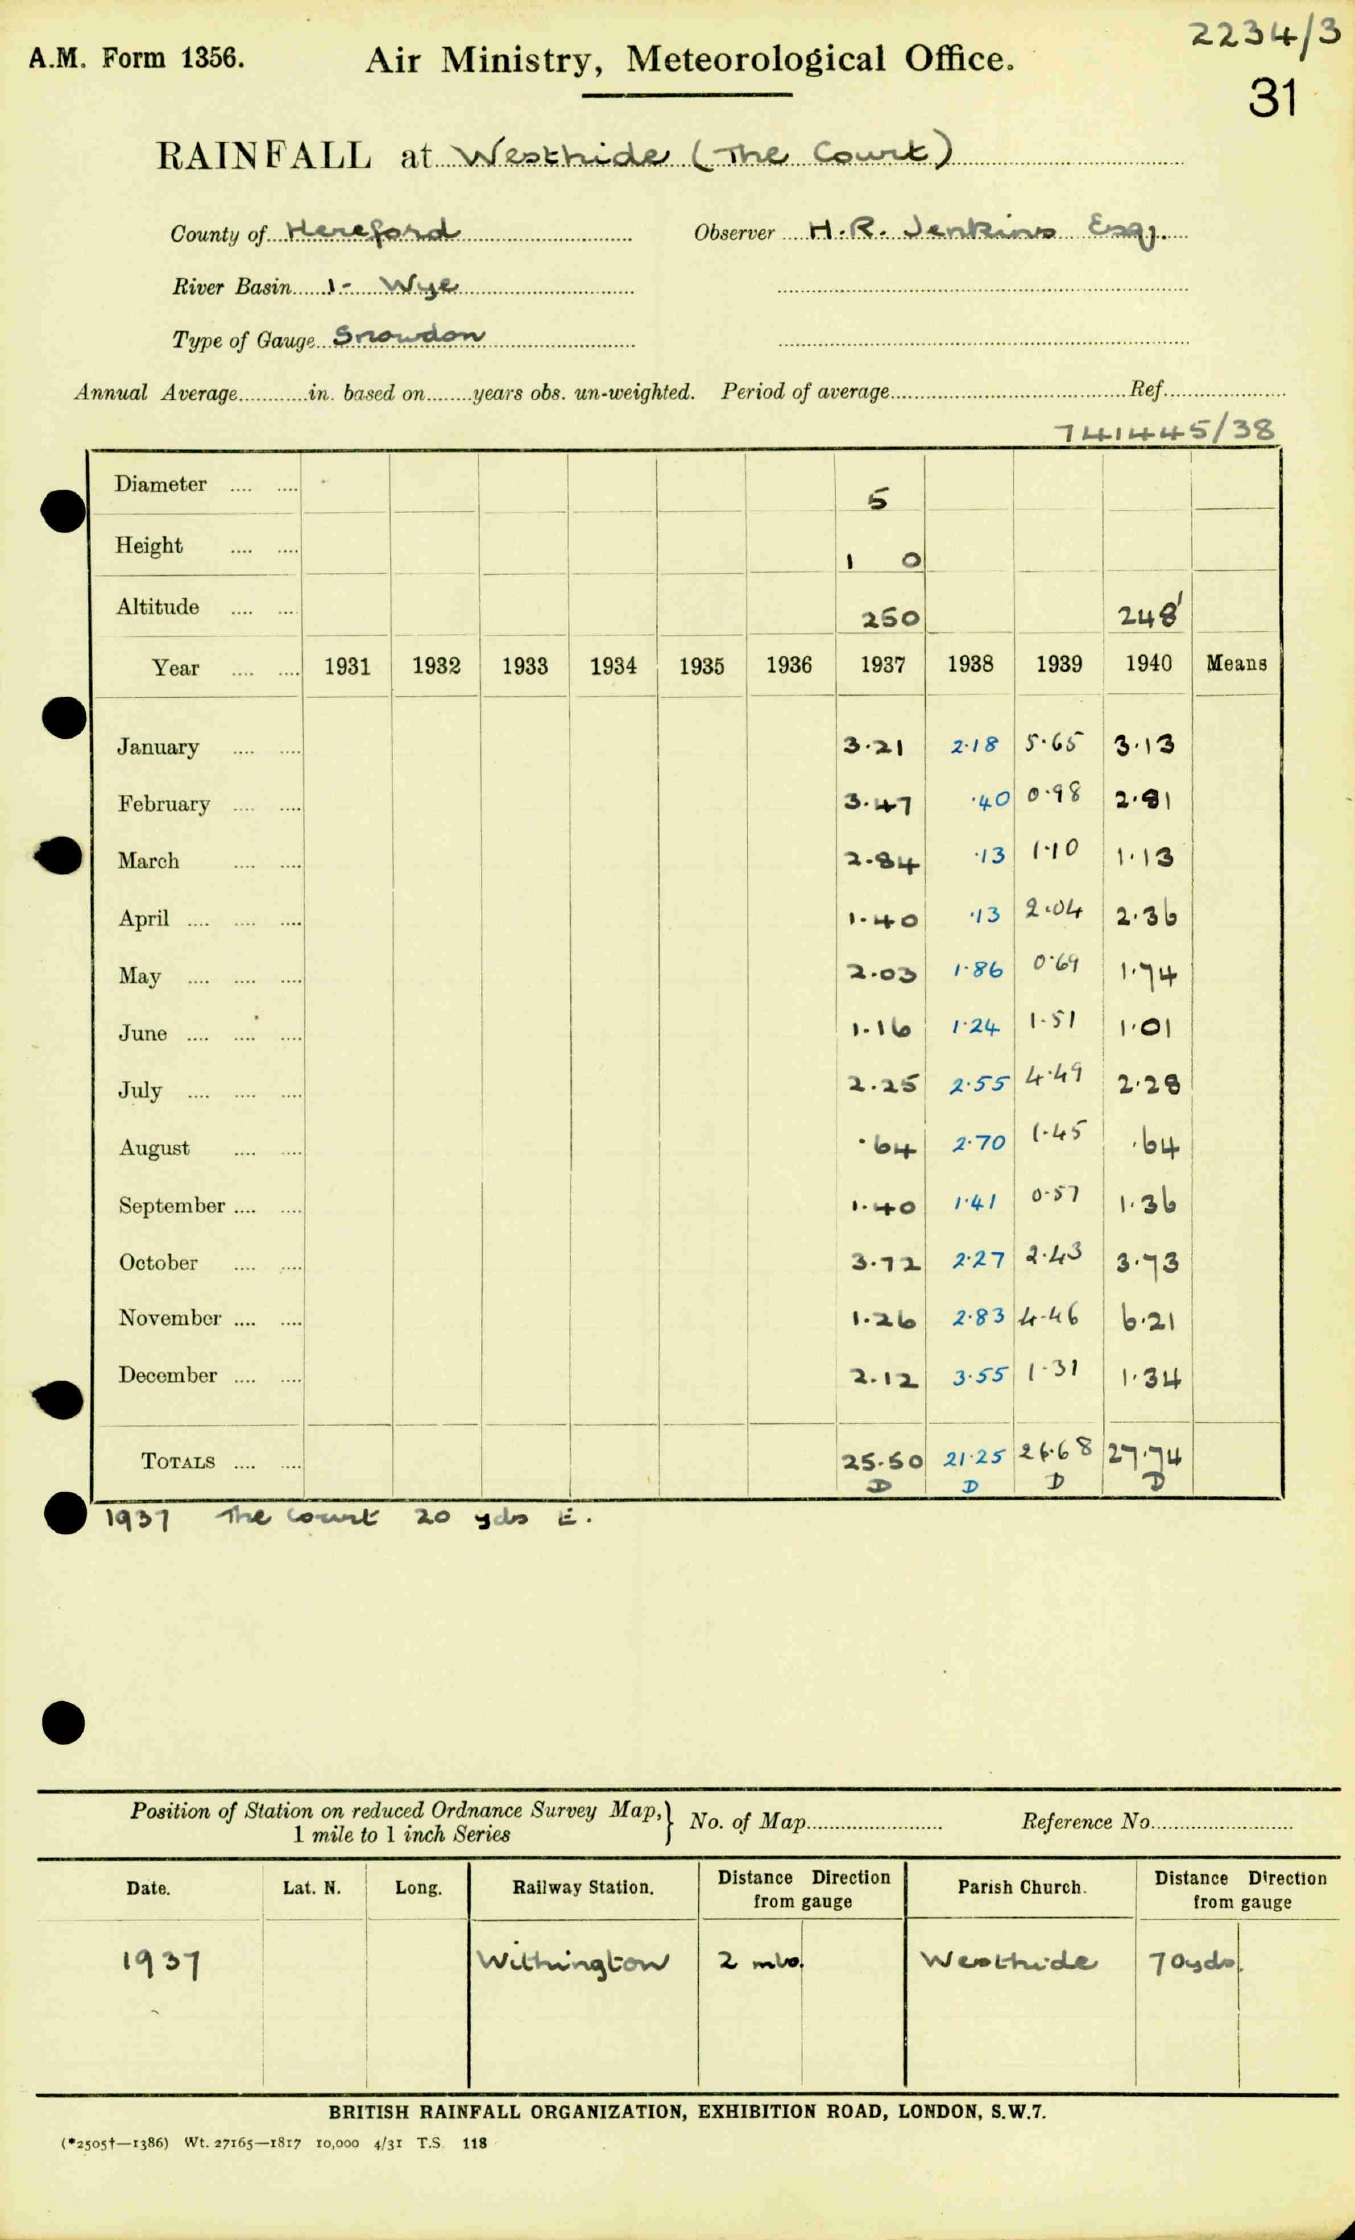 2234/3
A.M. Form 1356. Air Ministry, Meteorological Office.
31
RAINFALL at Westhide (The Court)
County of Hereford Observer H.R. Jenkins Esq.
River Basin 1- Wye
Type of Gauge Snowdon
Annual Average............in. based on........years obs. un-weighted. Period of average.......... Ref..........
741445/38
Diameter .... .... 5
Height .... .... 1 0
Altitude .... .... 250 248'
Year .... .... 1931 1932 1933 1934 1935 1936 1937 1938 1939 1940 Means
January .... .... 3.21 2.18 5.65 3.13
February .... .... 3.47 .40 0.98 2.81
March .... .... 2.84 .13 1.10 1.13
April .... .... .... 1.40 .13 2.04 2.36
May .... .... .... 2.03 1.86 0.69 1.74
June .... .... .... 1.16 1.24 1.51 1.01
July .... .... .... 2.25 2.55 4.49 2.28
August .... .... .64 2.70 1.45 .64
September .... .... 1.40 1.41 0.57 1.36
October .... .... 3.72 2.27 2.43 3.73
November .... .... 1.26 2.83 4.46 6.21
December .... .... 2.12 3.55 1.31 1.34
TOTALS .... .... 25.50 21.25 26.68 27.74
D D D D
1937 The Court 20 yds E.
Position of Station on reduced Ordnance Survey Map, } No. of Map.......... Reference No..........
1 mile to 1 inch Series
Date. Lat. N. Long. Railway Station. Distance Direction from gauge Parish Church. Distance Direction from gauge
1937 Withington 2 mls. Westhide 70yds.
BRITISH RAINFALL ORGANIZATION, EXHIBITION ROAD, LONDON, S.W.7.
(*2505†—1386) Wt. 27165—1817 10,000 4/31 T.S. 118